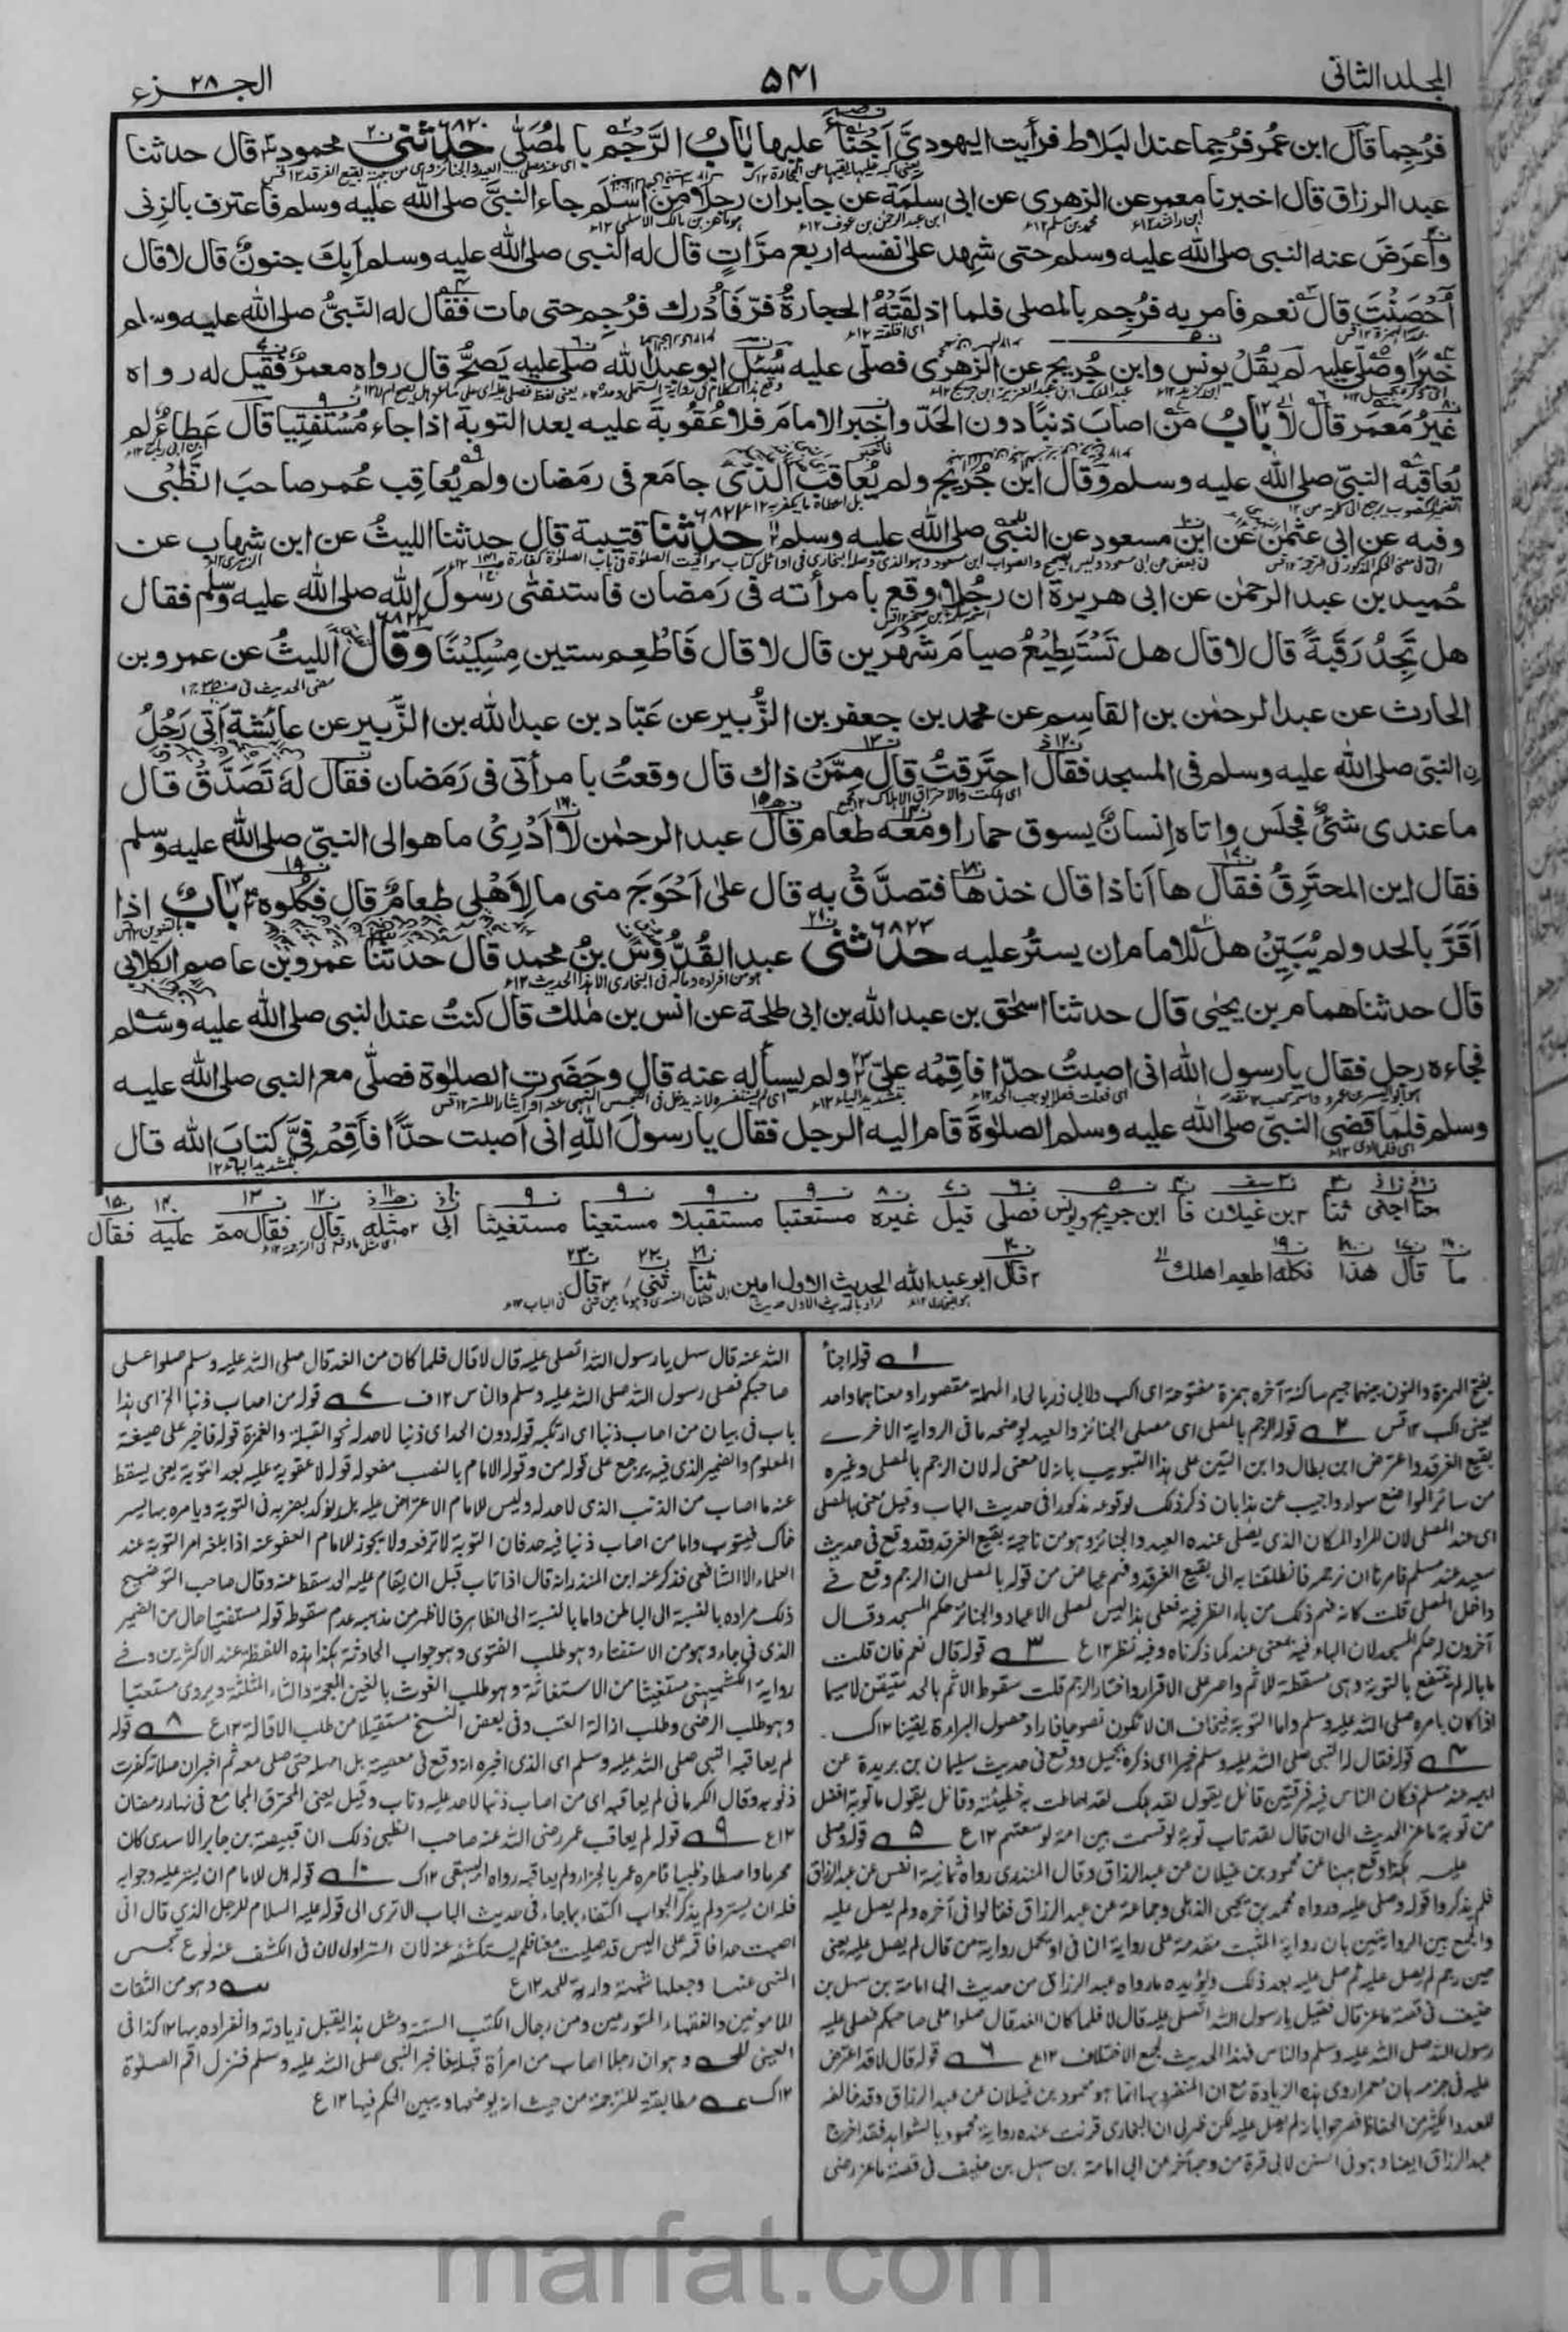 المجلد الثاني
٥٤١
الجزء ٢٨
فرُجِما قال ابن عُمر فرُجِما عند البَلاط فرأيت اليهوديَّ اَجْنَأَ عليها بابُ الرَّجْم بالمُصَلّى ٦٨٢٠ حدثني محمود قال حدثنا
عبد الرزاق قال اخبرنا معمر عن الزهرى عن ابى سلمة عن جابر ان رجلا من اسلم جاء النبىَّ صلى الله عليه وسلم فاعترف بالزنى
فاَعرَضَ عنه النبى صلى الله عليه وسلم حتى شهد على نفسه اربع مرّاتٍ قال له النبى صلى الله عليه وسلم اَبِكَ جنونٌ قال لا قال
اَحْصَنْتَ قال نعم فامر به فرُجِم بالمصلى فلما اذلقَتْهُ الحجارةُ فرّ فَاُدرك فرُجِم حتى مات فقال له النبىُّ صلى الله عليه وسلم
خيرًا وصَلّى عليه لم يقُلْ يونس وابن جُريج عن الزهرى فصلّى عليه سُئل ابو عبد الله صلى عليه يَصحُّ قال رواه معمرٌ فقيل له رواه
غيرُ مَعمر قال لا بابُ من اصابَ ذنبًا دون الحَدّ واَخبر الامامَ فلا عُقوبةَ عليه بعد التوبة اذا جاء مُسْتَفْتِيا قال عَطاءٌ لم
يُعاقبْه النبىّ صلى الله عليه وسلم وقال ابن جُريج ولم يُعاقب الذى جامَع فى رمضان ولم يُعاقِب عُمر صاحبَ الظَبْى
وفيه عن ابى عثمٰن عن ابن مسعود عن النبى صلى الله عليه وسلم ٦٨٢١ حدثنا قتيبة قال حدثنا الليثُ عن ابن شهاب عن
حُميد بن عبد الرحمٰن عن ابى هريرة ان رجُلا وقع بامرأته فى رَمَضان فاستفتٰى رسولَ الله صلى الله عليه وسلم فقال
هل تَجِدُ رَقَبةً قال لا قال هل تَسْتَطِيْعُ صيامَ شَهْرَين قال لا قال فَاَطْعِم ستين مِسْكِيْنًا ٦٨٢٢ وقال الليثُ عن عمرو بن
الحارث عن عبد الرحمٰن بن القاسِم عن محمد بن جعفر بن الزُّبير عن عَبّاد بن عبد الله بن الزُّبير عن عائشة اَتٰى رَجُلُ
نِ النبىَّ صلى الله عليه وسلم فى المسجد فقال احتَرقتُ قال مِمَّنْ ذاك قال وقعتُ بامرأتى فى رَمَضان فقال لهٗ تَصَدَّقْ قال
ما عندى شىْءٌ فجلَس واتاه اِنسانٌ يسوق حمارا ومَعَه طعام قال عبد الرحمٰن لا اَدْرِىْ ما هو الى النبىّ صلى الله عليه وسلم
فقال اين المحتَرِقُ فقال ها اَنا ذا قال خذها فتصدَّقْ به قال علٰى اَحْوَجَ منى ما لِاَهْلِى طعامٌ قال فكُلوه بابٌ اذا
اَقَرَّ بالحد ولم يُبَيِّنْ هل للامام ان يستُر عليه ٦٨٢٣ حدثنى عبد القُدُّوْسِ بنُ محمد قال حدثنا عمرو بن عاصم الكلابى
قال حدثنا همام بن يحيٰى قال حدثنا اسحٰق بن عبد الله بن ابى طلحة عن انس بن مٰلك قال كنتُ عند النبى صلى الله عليه وسلم
فجاءه رجل فقال يا رسول الله انى اصبتُ حدّا فاَقِمْه علىّ ولم يسأله عنه قال وحَضَرتِ الصلٰوة فصلّى مع النبى صلى الله عليه
وسلم فلمّا قضى النبىّ صلى الله عليه وسلم الصلٰوةَ قام اليه الرجل فقال يا رسولَ اللهِ انى اَصبت حدًّا فاَقِمْ فِىَّ كتابَ الله قال
حنا اجنى ثنا ٢ بن غيلان فا ابن جريج ويونس فصلى قيل غيره مستعتبا مستقبلا مستعينا مستغيثا ابى ٢ مثله قال فقال مم عليه فقال
ما قال هذا فكله اطعم اهلك
٢ قال ابو عبد الله الحديث الاول ابين ثنا ثنى ٢ قال
١ قوله اجنأ
بفتح الهمزة والنون بينهما جيم ساكنة آخره همزة مفتوحة اى اكب ولابى ذر بالحاء المهملة مقصورا ومعناهما واحد
يعنى اكب ١٢ قس ٢ قوله الرجم بالمصلى اى مصلى الجنائز والعيد يوضحه ما فى الرواية الاخرى
بقيع الغرقد واعترض ابن بطال وابن التين على هذا التبويب بانه لا معنى له لان الرجم بالمصلى وغيره
من سائر المواضع سواء واجيب عن هذا بان ذكر ذلك لوقوعه مذكورا فى حديث الباب وقيل معنى بالمصلى
اى عند المصلى لان المراد المكان الذى يصلى عنده العيد والجنائز وهو من ناحية بقيع الغرقد وقد وقع فى حديث
سعيد عند مسلم فامرنا ان نرجمه فانطلقنا به الى بقيع الغرقد وفهم عياض من قوله بالمصلى ان الرجم وقع فى
داخل المصلى قلت كانه فهم ذلك من باء الظرفية فعلى هذا ليس لمصلى الاعياد والجنائز حكم المسجد وقال
آخرون له حكم المسجد لان الباء فيه بمعنى عند كما ذكرناه وفيه نظر ١٢ ع ٣ قوله قال نعم فان قلت
ما باله لم ينتفع بالتوبة وهى مسقطة للاثم واصر على الاقرار واختار الرجم قلت سقوط الاثم بالحد متيقن لا سيما
اذا كان بامره صلى الله عليه وسلم واما التوبة فيخاف ان لا تكون نصوحا فاراد حصول البراءة يقينا ١٢ ك
٤ قوله فقال له النبى صلى الله عليه وسلم خيرا اى ذكره بجميل ووقع فى حديث سليمان بن بريدة عن
ابيه عند مسلم فكان الناس فيه فرقتين قائل يقول لقد هلك لقد احاطت به خطيئته وقائل يقول ما توبة افضل
من توبة ماعز الحديث الى ان قال لقد تاب توبة لو قسمت بين امة لوسعتهم ١٢ ع ٥ قوله وصلى
عليه هكذا وقع ههنا عن محمود بن غيلان عن عبد الرزاق وقال المنذرى رواه ثمانية انفس عن عبد الرزاق
فلم يذكروا قوله وصلى عليه ورواه محمد بن يحيى الذهلى وجماعة عن عبد الرزاق فقالوا فى آخره ولم يصل عليه
والجمع بين الروايتين بان رواية المثبت مقدمة على رواية النافى او يحمل رواية من قال لم يصل عليه يعنى
حين رجم لم يصل عليه ثم صلى عليه بعد ذلك ويؤيده ما رواه عبد الرزاق من حديث ابى امامة بن سهل بن
حنيف فى قصة ماعز قال فقيل يا رسول الله اتصلى عليه قال لا فلما كان الغد قال صلوا على صاحبكم فصلى عليه
رسول الله صلى الله عليه وسلم والناس فهذا الحديث يجمع الاختلاف ١٢ ع ٦ قوله قال لا قد اعترض
عليه فى جزمه بان معمرا روى هذه الزيادة مع ان المنفرد بها انما هو محمود بن غيلان عن عبد الرزاق وقد خالفه
العدد الكثير من الحفاظ فصرحوا بانه لم يصل عليه لكن ظهر لى ان البخارى قويت عنده رواية محمود بالشواهد فقد اخرج
عبد الرزاق ايضا وهو فى السنن لابى قرة من وجه آخر عن ابى امامة بن سهل بن حنيف فى قصة ماعز رضى
الله عنه قال سهل يا رسول الله اتصلى عليه قال لا قال فلما كان من الغد قال صلى الله عليه وسلم صلوا على
صاحبكم فصلى رسول الله صلى الله عليه وسلم والناس ١٢ ف ٧ قوله من اصاب ذنبا الخ اى هذا
باب فى بيان من اصاب ذنبا اى ارتكبه قوله دون الحد اى ذنبا لا حد له نحو القبلة والغمزة قوله فاخبر على صيغة
المعلوم والضمير الذى فيه يرجع على قوله من وقوله الامام بالنصب مفعوله قوله لا عقوبة عليه بعد التوبة يعنى يسقط
عنه ما اصاب من الذنب الذى لا حد له وليس للامام الاعتراض عليه بل يؤكد بصيرته فى التوبة ويامره بها ليس
ذاك فيتوب واما من اصاب ذنبا فيه حد فان التوبة لا ترفعه ولا يجوز للامام العفو عنه اذا بلغه امر التوبة عند
العلماء الا الشافعى فذكر عنه ابن المنذر انه قال اذا تاب قبل ان يقام عليه الحد سقط عنه وقال صاحب التوضيح
ذلك مراده بالنسبة الى الباطن واما بالنسبة الى الظاهر فالاظهر من مذهبه عدم سقوطه قوله مستفتيا حال من الضمير
الذى فى جاء وهو من الاستفتاء وهو طلب الفتوى وهو جواب الحادثة هكذا هذه اللفظة عند الاكثرين وفى
رواية الكشميهنى مستغيثا من الاستغاثة وهو طلب الغوث بالغين المعجمة والثاء المثلثة ويروى مستعتبا
وهو طلب الرضى وطلب ازالة العتب وفى بعض النسخ مستقيلا من طلب الاقالة ١٢ ع ٨ قوله
لم يعاقبه النبى صلى الله عليه وسلم اى الذى اخبره انه وقع فى معصية بل امهله حتى صلى معه ثم اخبر ان صلاته كفرت
ذنوبه وقال الكرمانى لم يعاقبه اى من اصاب ذنبا لا حد عليه وتاب وقيل يعنى المحترق المجامع فى نهار رمضان
١٢ ع ٩ قوله لم يعاقب عمر رضى الله عنه صاحب الظبى ذلك ان قبيصة بن جابر الاسدى كان
محرما واصطاد ظبيا فامره عمر بالجزاء ولم يعاقبه رواه البيهقى ١٢ ك ١٠ قوله هل للامام ان يستر عليه وجوابه
فله ان يستر ولم يذكر الجواب اكتفاء بما جاء فى حديث الباب الا ترى الى قوله عليه السلام للرجل الذى قال انى
اصبت حدا فاقمه على اليس قد صليت معنا فلم يستكشفه عنه لان الستر اولى لان فى الكشف عنه نوع تجسس
المنهى عنها وجعلها شبهة دارئة للحد ١٢ ع وهو من الثقات
المامونين والفقهاء المتورعين ومن رجال الكتب الستة ومثل هذا يقبل زيادته وانفراده بها ١٢ كذا فى
العينى وهو ان رجلا اصاب من امرأة قبلة فاخبر النبى صلى الله عليه وسلم فنزل اقم الصلوة
١٢ ك مطابقته للترجمة من حيث انه يوضحها ويبين الحكم فيها ١٢ ع
marfat.com